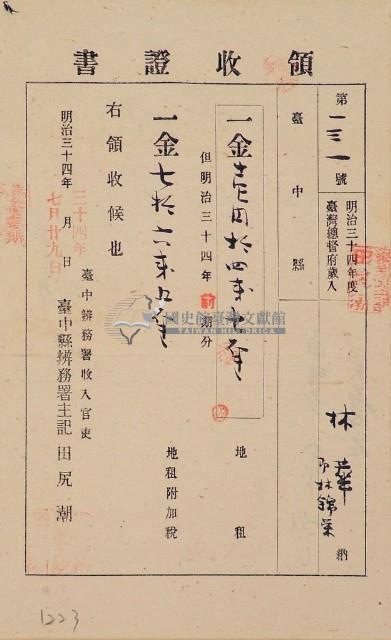 領收證書
第一三一號
明治三十四年度
臺灣總督府歲入
臺中縣
林
即林錦榮
納
一金
地租
但明治三十四年前期分
一金七拾六錢五厘
地租附加稅
右領收候也
明治三十四年 月 日
三十四年
七月廿九日
臺中辨務署收入官吏
臺中縣辨務署主記 田尻潮
國史館臺灣文獻館
TAIWAN HISTORICA
1223